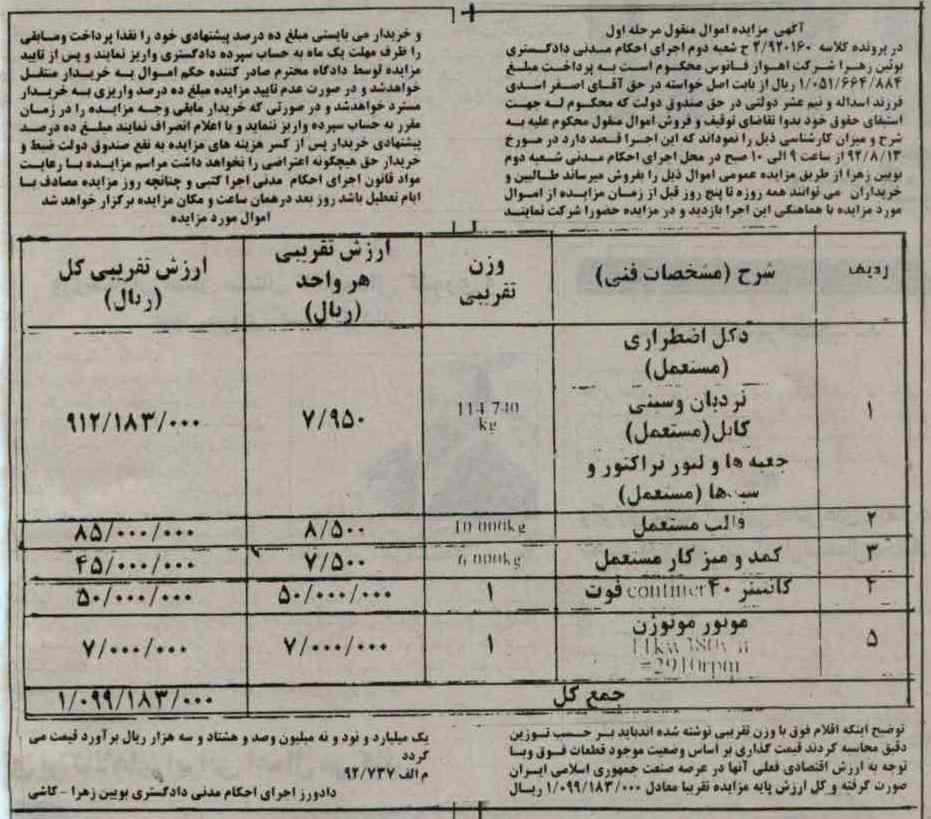 آگهی مزایده اموال منقول مرحله اول
در پرونده کلاسه ۲/۹۲۰۱۶۰ ح شعبه دوم اجرای احکام مدنی دادگستری
بوئین زهرا شرکت اهواز فانوس محکوم است به پرداخت مبلغ
۱/۰۵۱/۶۶۴/۸۸۴ ریال از بابت اصل خواسته در حق آقای اصغر اسدی
فرزند اسداله و نیم عشر دولتی در حق صندوق دولت که محکوم له جهت
استیفای حقوق خود بدوا تقاضای توقیف و فروش اموال منقول محکوم علیه به
شرح و میزان کارشناسی ذیل را نموداند که این اجرا قصد دارد در مورخ
۹۲/۸/۱۳ از ساعت ۹ الی ۱۰ صبح در محل اجرای احکام مدنی شعبه دوم
بویین زهرا از طریق مزایده عمومی اموال ذیل را بفروش میرساند طالبین و
خریداران می توانند همه روزه تا پنج روز قبل از زمان مزایده از اموال
مورد مزایده با هماهنگی این اجرا بازدید و در مزایده حضورا شرکت نمایند
و خریدار می بایستی مبلغ ده درصد پیشنهادی خود را نقدا پرداخت ومابقی
را ظرف مهلت یک ماه به حساب سپرده دادگستری واریز نمایند و پس از تایید
مزایده توسط دادگاه محترم صادر کننده حکم اموال به خریدار منتقل
خواهدشد و در صورت عدم تایید مزایده مبلغ ده درصد واریزی به خریدار
مسترد خواهدشد و در صورتی که خریدار مابقی وجه مزایده را در زمان
مقرر به حساب سپرده واریز ننماید و یا اعلام انصراف نمایند مبلغ ده درصد
پیشنهادی خریدار پس از کسر هزینه های مزایده به نفع صندوق دولت ضبط و
خریدار حق هیچگونه اعتراضی را نخواهد داشت مراسم مزایده با رعایت
مواد قانون اجرای احکام مدنی اجرا کتبی و چنانچه روز مزایده مصادف با
ایام تعطیل باشد روز بعد در همان ساعت و مکان مزایده برگزار خواهد شد
اموال مورد مزایده
ردیف شرح (مشخصات فنی) وزن تقریبی ارزش تقریبی هر واحد (ریال) ارزش تقریبی کل (ریال)
۱ دکل اضطراری (مستعمل) نردبان وسینی کابل(مستعمل) جعبه ها و تیور تراکتور و (مستعمل) 114 740 kg ۷/۹۵۰ ۹۱۲/۱۸۳/۰۰۰
۲ قالب مستعمل 10 000kg ۸/۵۰۰ ۸۵/۰۰۰/۰۰۰
۳ کمد و میز کار مستعمل 6 000kg ۷/۵۰۰ ۴۵/۰۰۰/۰۰۰
۴ کانتینر continer ۴۰ فوت ۱ ۵۰/۰۰۰/۰۰۰ ۵۰/۰۰۰/۰۰۰
۵ موتور موتوژن 11kw 380v =2910rpm ۱ ۷/۰۰۰/۰۰۰ ۷/۰۰۰/۰۰۰
جمع کل ۱/۰۹۹/۱۸۳/۰۰۰
توضیح اینکه اقلام فوق با وزن تقریبی نوشته شده اندباید بر حسب توزین
دقیق محاسبه کردند قیمت گذاری بر اساس وضعیت موجود قطعات فوق وبا
توجه به ارزش اقتصادی فعلی آنها در عرصه صنعت جمهوری اسلامی ایران
صورت گرفته و کل ارزش پایه مزایده تقریبا معادل ۱/۰۹۹/۱۸۳/۰۰۰ ریال
یک میلیارد و نود و نه میلیون وصد و هشتاد و سه هزار ریال برآورد قیمت می
گردد
م الف ۹۲/۷۳۷
دادورز اجرای احکام مدنی دادگستری بویین زهرا - کاشی